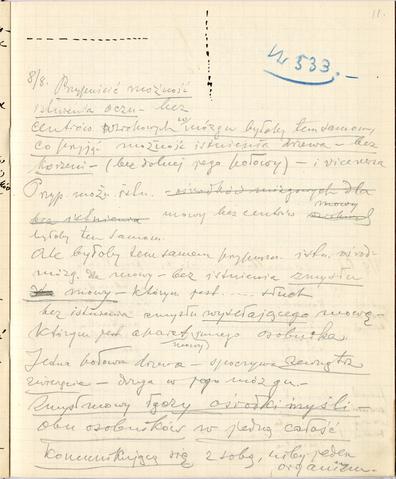 11.
Nr 533.-
8/8. Przypuścić możność
istnienia oczu - bez
centrów wzrokowych w mózgu byłoby tem samem
co przyjąć możność istnienia drzewa - bez
korzeni - (bez dolnej jego połowy) - i vice versa
Przyp. możn. istn. - ośrodków mózgowych dla
bez istnienia mowy bez centrów mowy
byłoby tem samem.
Ale byłoby tem samem przypuszcz. istn. ośrod-
mózg. dla mowy - bez istnienia zmysłu
mowy - którym jest ..... słuch
bez istnienia zmysłu wysyłającego mowę -
którym jest aparat mowy osobnika
Jedna połowa drzewa - spoczywa zewnątrz
zwierzęcia - druga w jego mózgu.
Zmysł mowy łączy ośrodki myśli -
obu osobników w jedną całość
komunikującą się z sobą, niby jeden
organizm.